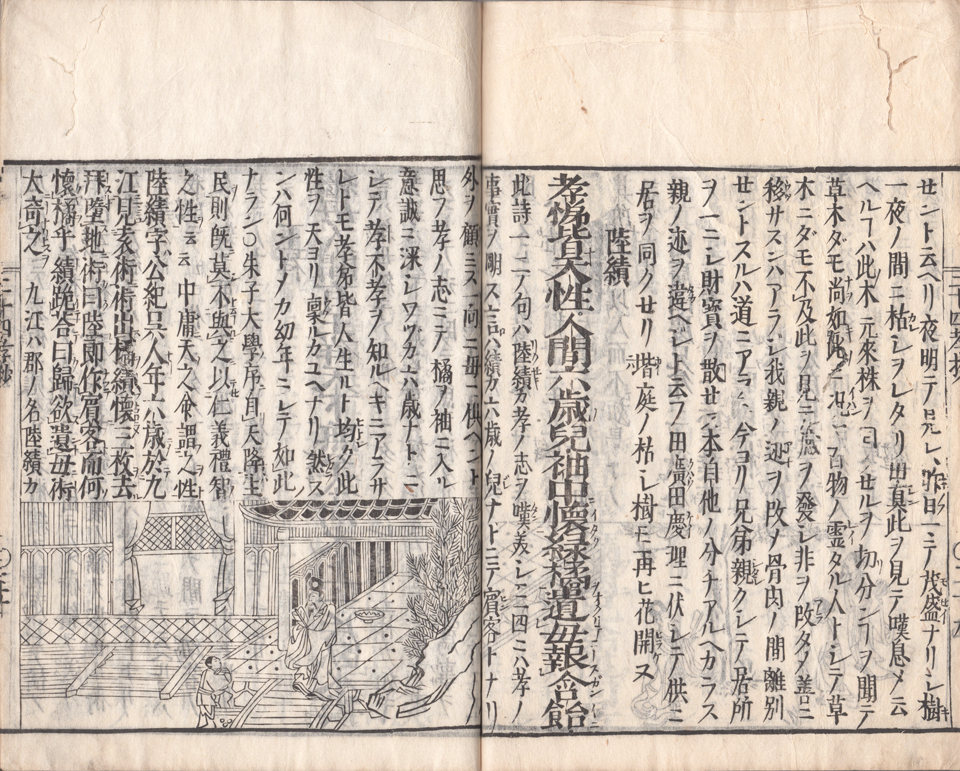 セント云ヘリ夜明テ見レハ昨日ニテ茂盛ナリシ樹
一夜ノ間ニ枯シヲレタリ田真此ヲ見テ嘆息メ云
此木元來株ヲ同ウセルヲ切分ンヿヲ聞テ
草木ダモ尚如此 万物ノ霊タル人トシテ草
木ニダモ不及此ヲ見ニ 發シ非ヲ改タメ善ニ
移サスンハアラシ我親ノ迹ヲ改メ骨肉ノ間離別
セントスルハ道ニアラス今ヨリ兄弟親クシテ居所
ヲ一ニシ財寶ヲ散セス本自他ノ分チアルヘカラス
親ノ迹ヲ違ヘジト云フ田廣田慶理ニ伏シテ供ニ
居ヲ同クセリ堦庭ノ枯シ樹モ再ヒ花開ヌ
陸績
孝悌皆天性人間六歳兒袖中懷緑橘遺母報含飴
此詩一二テ句ハ陸績カ孝ノ志ヲ嘆美シ三四ニハ孝ノ
事實ヲ明ス言ハ績カ六歳ノ兒ナトニテ賓客トナリ
外ヲ顧ミス一向ニ母ニ供ヘント
思フ孝ノ志ミテ橘ヲ袖ニ入ル
意誠ニ深シワツカ六歳ナトニ
シテ孝不孝ヲ知ルヘキニアラサ
レトモ孝弟皆人生ルト均ク此
性ヲ天ヨリ稟ルカユヘナリ然ス
ンハ何ントメカ幼年ニシテ如此
ナラン〇朱子大學序自天降生
民則既莫不與之以仁義禮智
之性云云中庸天之命謂之性
陸績字公紀呉人年六歳於九
江見袁術術出橘績懷三枚去
拜墮地術曰陸郎作賓客而何
懷橘乎績跪答曰歸欲遺母術
大奇之 九江ハ郡ノ名陸績カ
二十四孝抄